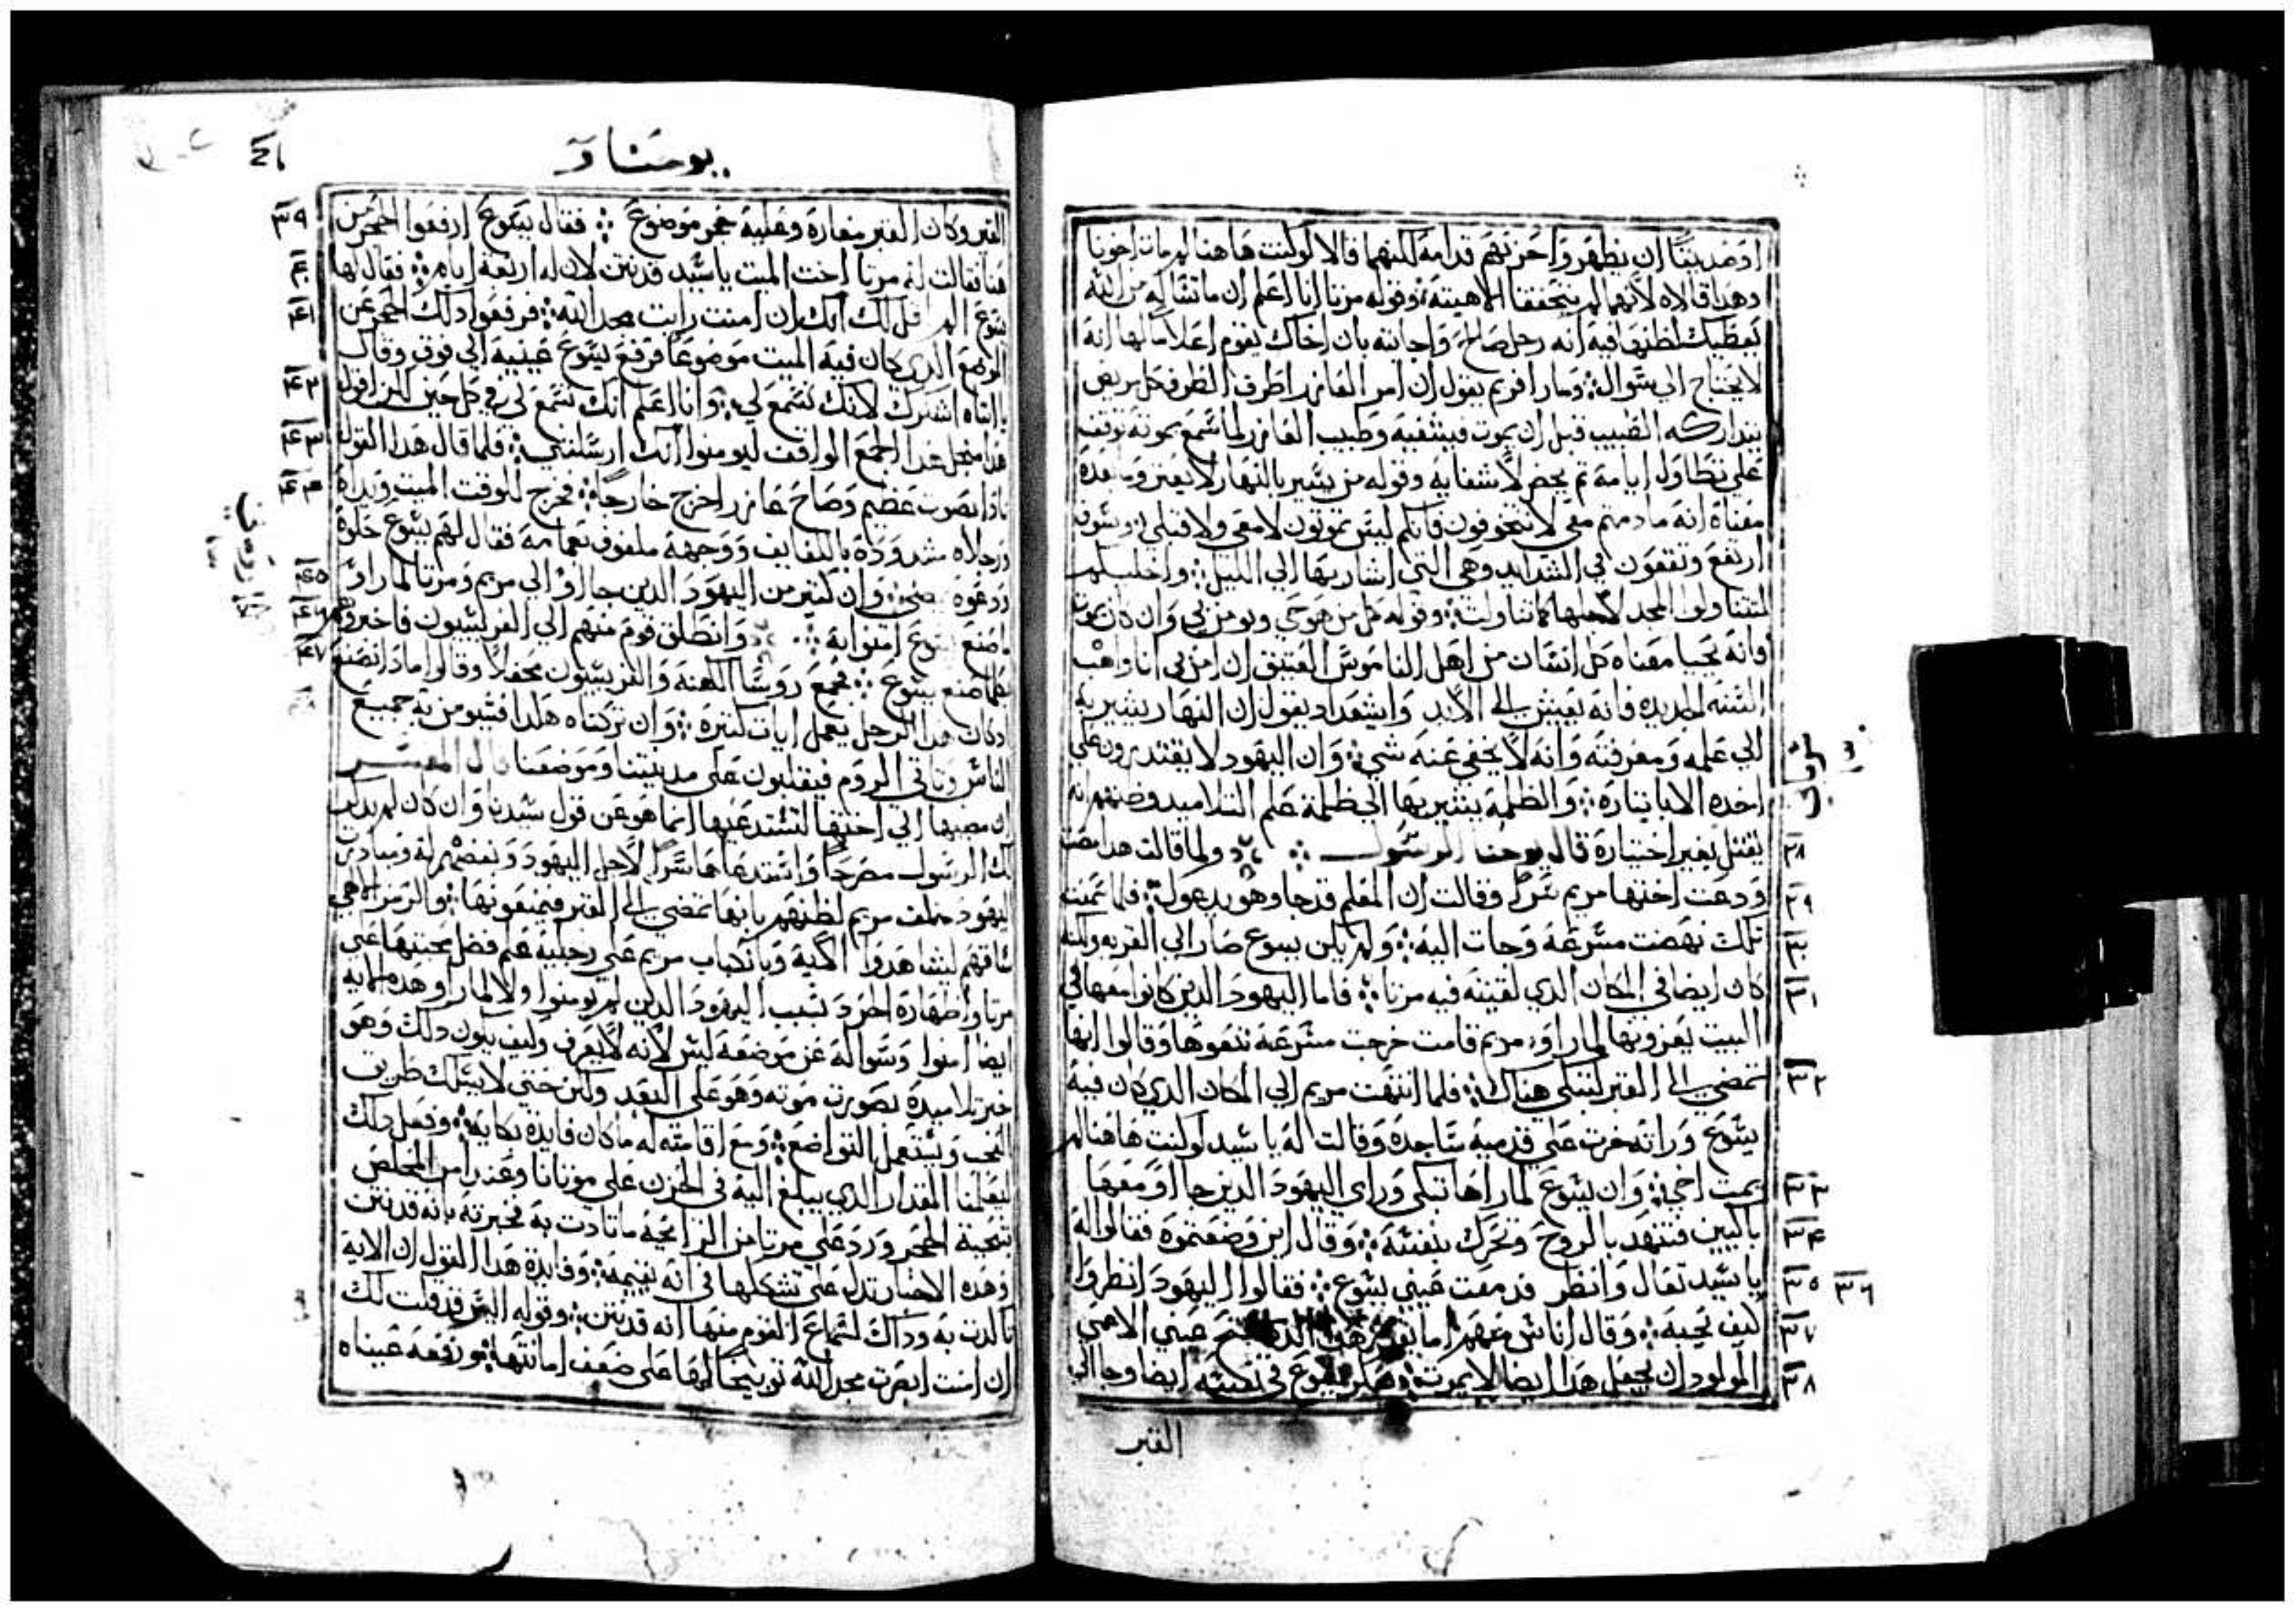 او صديقنا ان يظهروا حزنهم قدامه كلتيهما قالا لو كنت هاهنا لم مات اخونا
وهذا قالاه لانهما لم يتحققا الاهيته وقوله مرتا انا اعلم ان ما تساله من الله
يعطيك لظنها فيه انه رجل صالح واجابته بان اخاك يقوم اعلاما لها انه
لا يحتاج الي سوال ومار افريم يقول ان امر العازر اطرف الطرف كل مريض
يتداركه الطبيب قبل ان يموت فيشفيه وطبيب العازر لما سمع بموته توقف
علي تطاول ايامه ثم يحضر لاشفايه وقوله من يسير بالنهار لا يعثر وما بعده
معناه انه ما دمتم معي لا تتخوفون فانكم ليس تموتون لا معي ولا قبلي وسوف
ارتفع وتقعون في الشدايد وهي التي اشار بها الي الليل
لتتناولوا المجد لاجلها كما تناولت وقوله كل من هو حي ويومن بي وان كان يموت
فانه يحيا معناه كل انسان من اهل الناموس العتيق ان امن بي انا واهب
السنه الجديده فانه يعيش الى الابد وايشعداد يقول ان النهار يشير به
الي علمه ومعرفته وانه لا يخفي عنه شي وان اليهود لا يقتدرون علي
اخذه الا بايثاره والظلمة يشير بها الي ظلمة علم التلاميد وظنهم انه
يقتل بغير اختياره قال يوحنا الرسول ولما قالت هدا مضت
ودعت اختها مريم سرا وقالت ان المعلم قد جا وهو يدعوك فلما سمعت
تلك نهضت مسرعة وجات اليه ولم يكن يسوع صار الي القريه ولكنه
كان ايضا في المكان الدي لقيته فيه مرتا فاما اليهود الدين كانوا معها في
البيت يعزونها لما راو مريم قامت خرجت مسرعة تبعوها وقالوا انها
تمضي الى القبر لتبكي هناك فلما انتهت مريم الي المكان الدي كان فيه
يسوع وراته خرت علي قدميه ساجده وقالت له يا سيد لو كنت هاهنا لم
يمت اخي وان يسوع لما راها تبكي وراي اليهود الدين جااو معها
باكيين فتنهد بالروح وتحرك بنفسه وقال اين وضعتموه فقالوا له
يا سيد تعال وانظر فدمعت عيني يسوع فقالوا اليهود انظروا
كيف يحبه وقال اناس منهم اما يقدر هدا الدي فتح عيني الاعمي
المولود ان يجعل هدا ايضا لا يموت يسوع في نفسه ايضا وجا الي
القبر
٢٨
٢٩
٣٠
٣١
٣٢
٣٣
٣٤
٣٥ ٣٦
٣٧
٣٨
يوحنا
القبر وكان القبر مغاره وعليه حجر موضوع فقال يسوع ارفعوا الحجر من
هنا فقالت له مرتا اخت الميت يا سيد قد نتن لان له اربعة ايام فقال لها
يسوع الم اقل لك انك ان امنت رايت مجد الله فرفعوا دلك الحجر عن
الموضع الدي كان فيه الميت موضوعا فرفع يسوع عينيه الي فوق وقال
يا ابتاه اشكرك لانك تسمع لي وانا اعلم انك تسمع لي في كل حين لكن اقول
هدا من اجل هدا الجمع الواقف ليومنوا انك ارسلتني فلما قال هدا القول
نادا بصوت عظيم وصاح عازر اخرج خارجا فخرج للوقت الميت ويداه
ورجلاه مشدوده باللفايف ووجهه ملفوف بعمامه فقال لهم يسوع حلوه
ودعوه يمضي وان كثير من اليهود الدين جااو الي مريم ومرتا لما راو
ما صنع يسوع امنوا به وانطلق قوم منهم الي الفريسيون فاخبروهم
بما صنع يسوع فجمع روسا الكهنه والفريسيون محفلا وقالوا مادا نصنع
ادكان هدا الرجل يعمل ايات كثيره وان تركناه هكدا فسيومن به جميع
الناس وياتي الروم فيغلبون علي مدينتنا وموضعنا قال المفسر
ان مضيها الي اختها لتستدعيها انما هو عن قول سيدنا وان كان لم يدكر
دلك الرسول مصرحا واستدعاها سرا لاجل اليهود وبغضهم له ومبادره
اليهود خلف مريم لظنهم بانها تمضي الى القبر فيمنعونها والرمز الاهي
ساقهم ليشاهدوا الايه وبانكباب مريم علي رجليه علم فضل محبتها علي
مرتا واظهاره الحرد بسبب اليهود الدين لم يومنوا ولا لما راو هده الايه
ايضا امنوا وسواله عن موضعه ليس لانه لا يعرف وكيف يكون دلك وهو
خبر تلاميده بصورة موته وهو علي البعد ولكن حتي لا يسلك طريق
العجب ويستعمل التواضع ومع اقامته له ما كان فايدة بكايه وفعل دلك
ليعلمنا المقدار الدي يبلغ اليه في الحزن علي موتانا وعند امر المخلص
بتنحية الحجر ورد علي مرتا من الرايحه ما تادت به فخبرته بانه قد نتن
وهده الاخبار تدل علي تشككها في انه يقيمه وفايدة هدا القول ان الايه
تاكدت به وداك لسماع القوم منها انه قد نتن وقوله اليس قد قلت لك
ان امنت ابصرت مجد الله توبيخا لها علي ضعف امانتها ورفعه عيناه
٣٩
٤٠
٤١
٤٢
٤٣
٤٤
٤٥
٤٦
٤٧